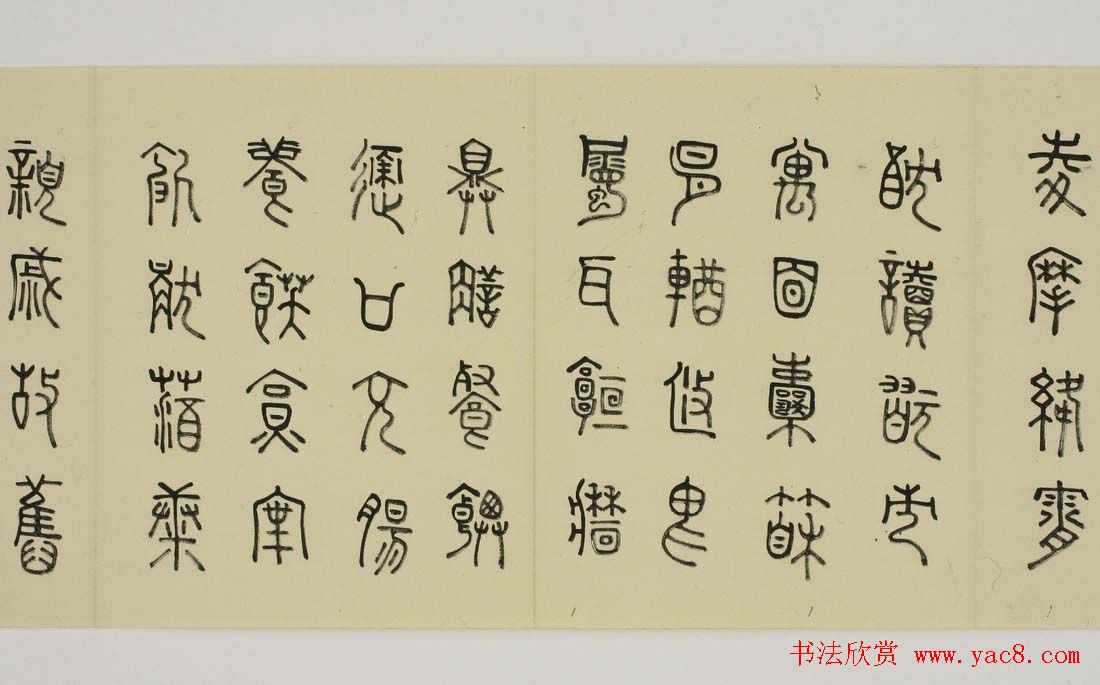 凌摩絳霄
耽讀翫市
寓目囊箱
易輶攸畏
屬耳垣牆
具膳餐飯
適口充腸
飽飫烹宰
飢厭糟糠
親戚故舊
书法欣赏 www.yac8.com